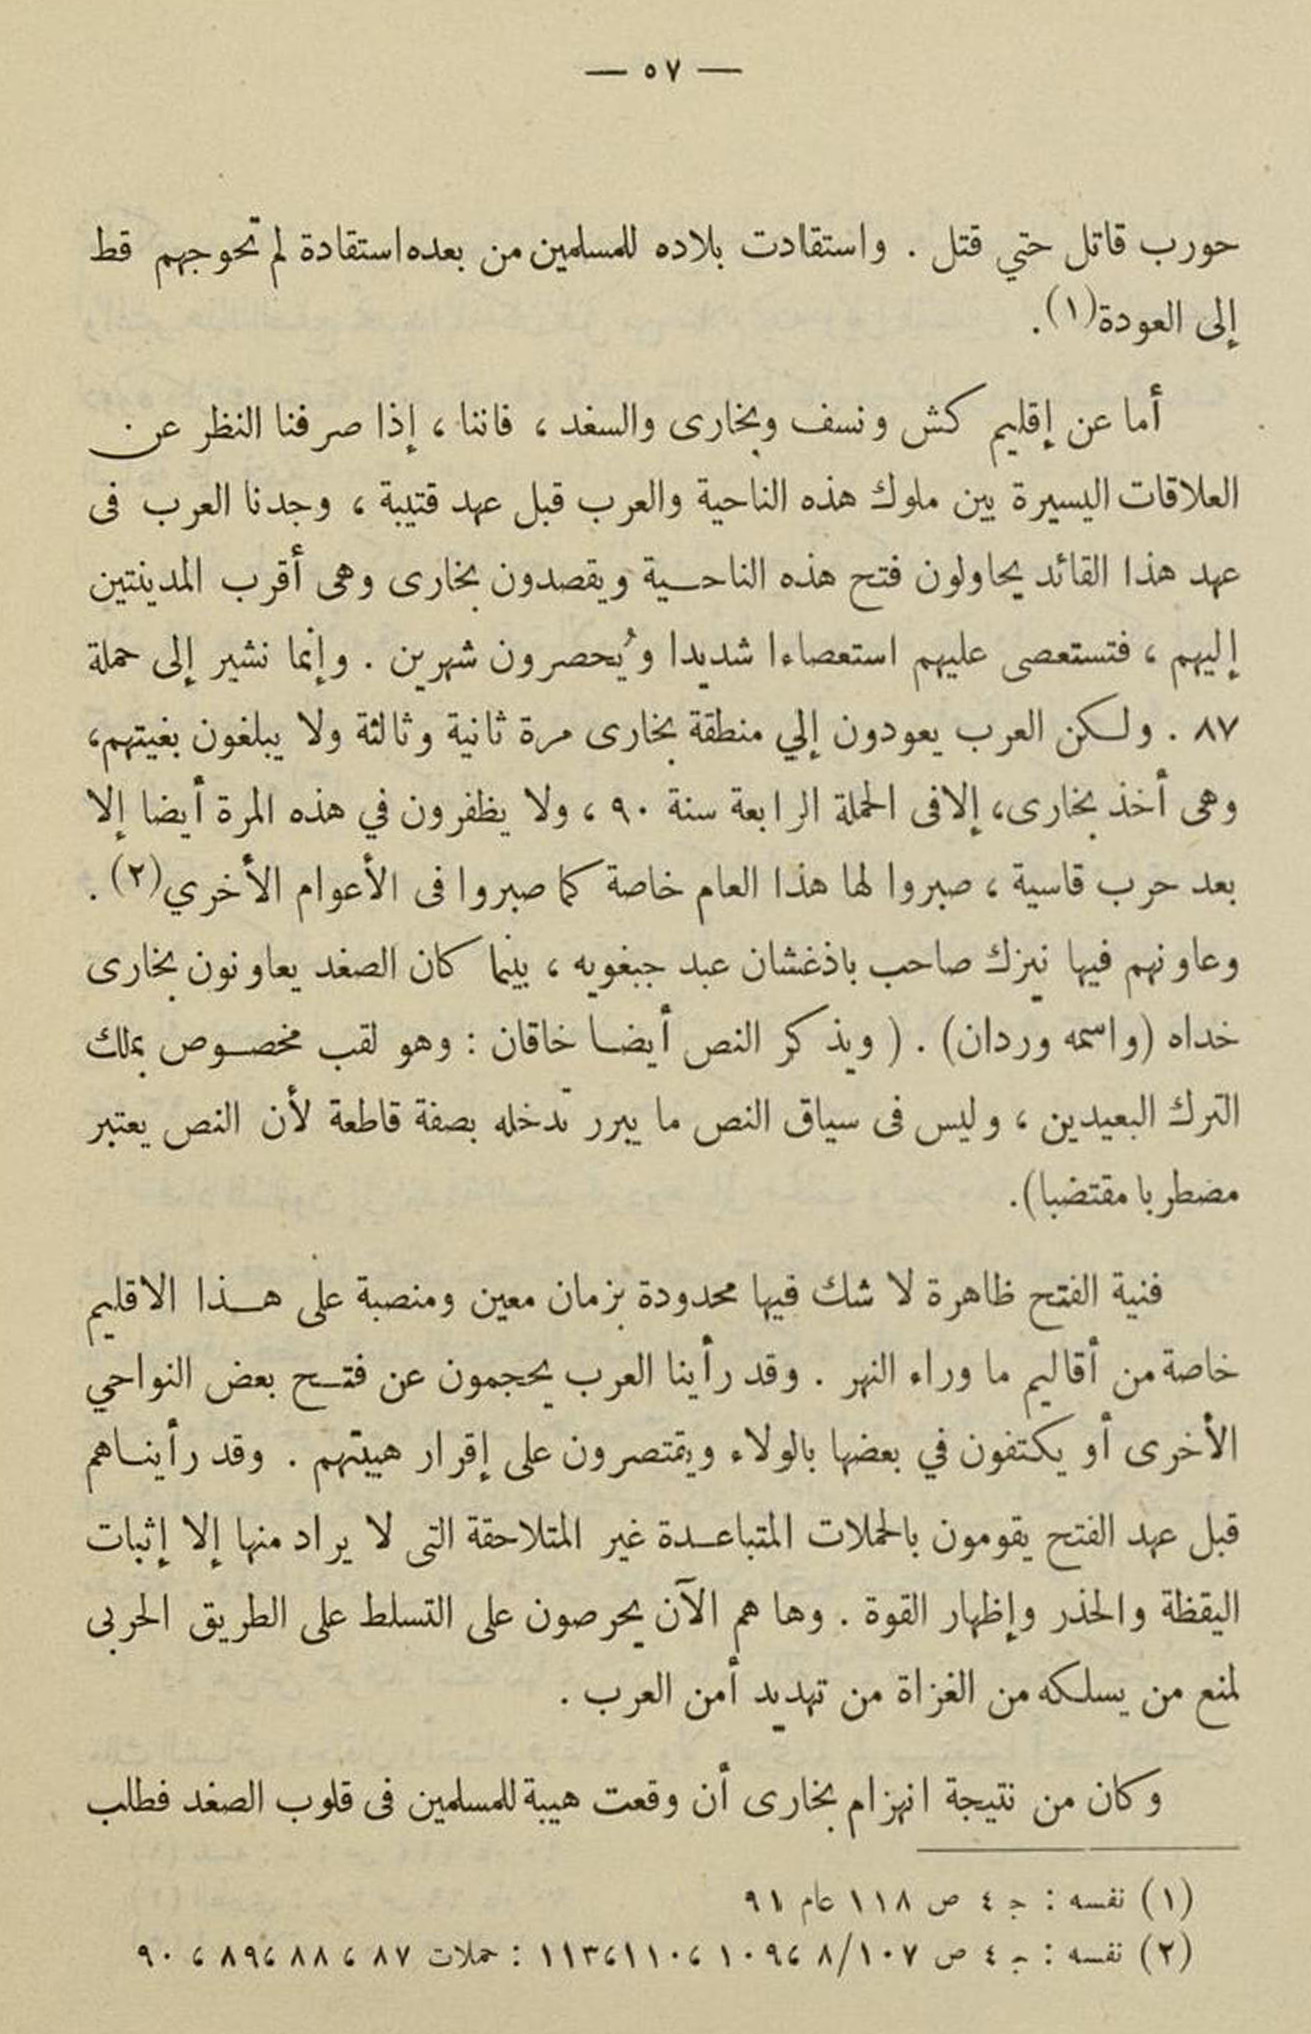 — ٥٧ —
حورب قاتل حتي قتل . واستقادت بلاده للمسلمين من بعده استقادة لم تحوجهم قط
إلى العودة(١).
أما عن إقليم كش ونسف وبخارى والسغد ، فاننا ، إذا صرفنا النظر عن
العلاقات اليسيرة بين ملوك هذه الناحية والعرب قبل عهد قتيبة ، وجدنا العرب فى
عهد هذا القائد يحاولون فتح هذه الناحية ويقصدون بخارى وهى أقرب المدينتين
إليهم ، فتستعصى عليهم استعصاءا شديدا ويُحصرون شهرين . وإنما نشير إلى حملة
٨٧ . ولكن العرب يعودون إلي منطقة بخارى مرة ثانية وثالثة ولا يبلغون بغيتهم،
وهى أخذ بخارى، إلافى الحملة الرابعة سنة ٩٠ ، ولا يظفرون في هذه المرة أيضا إلا
بعد حرب قاسية ، صبروا لها هذا العام خاصة كما صبروا فى الأعوام الأخري(٢) .
وعاونهم فيها نيزك صاحب باذغشان عبد جبغويه ، بينما كان الصغد يعاونون بخارى
خداه (واسمه وردان) . ( ويذكر النص أيضا خاقان : وهو لقب مخصوص بملك
الترك البعيدين ، وليس فى سياق النص ما يبرر تدخله بصفة قاطعة لأن النص يعتبر
مضطربا مقتضبا).
فنية الفتح ظاهرة لا شك فيها محدودة بزمان معين ومنصبة على هذا الاقليم
خاصة من أقاليم ما وراء النهر . وقد رأينا العرب يحجمون عن فتح بعض النواحي
الأخرى أو يكتفون في بعضها بالولاء ويقتصرون على إقرار هيبتهم . وقد رأيناهم
قبل عهد الفتح يقومون بالحملات المتباعدة غير المتلاحقة التى لا يراد منها إلا إثبات
اليقظة والحذر وإظهار القوة . وها هم الآن يحرصون على التسلط على الطريق الحربى
لمنع من يسلكه من الغزاة من تهديد أمن العرب .
وكان من نتيجة انهزام بخارى أن وقعت هيبة للمسلمين فى قلوب الصغد فطلب
(١) نفسه : ج ٤ ص ١١٨ عام ٩١
(٢) نفسه : ج ٤ ص ٨/١٠٧ ،١٠٩ ،١١٠،١١٣ : حملات ٨٧ ، ٨٨ ،٨٩ ، ٩٠